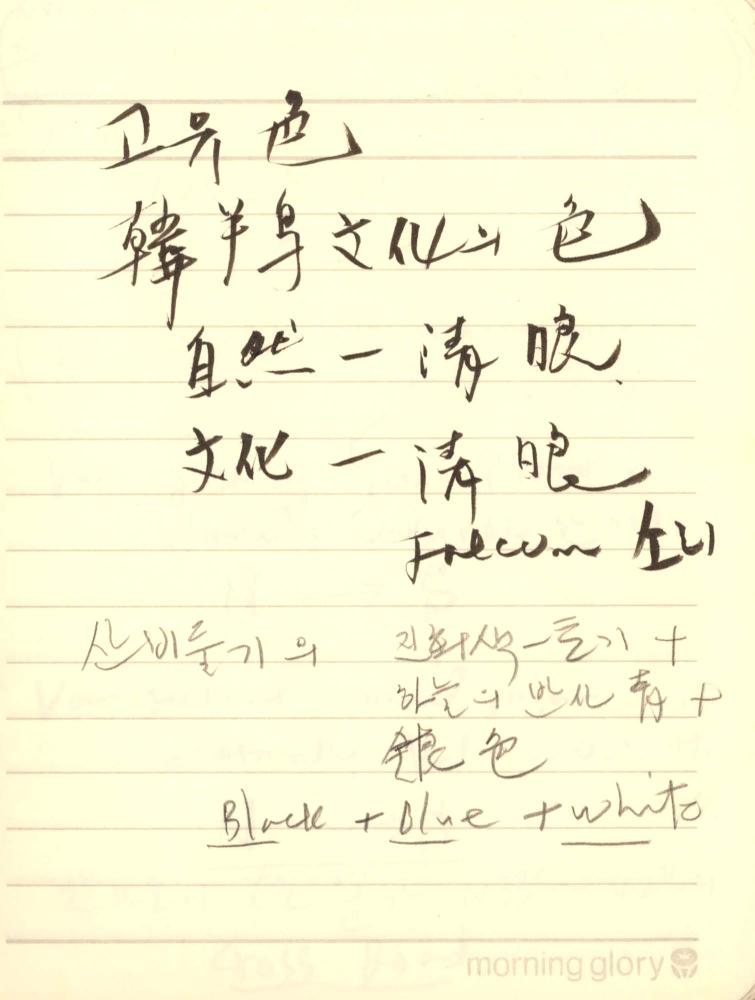 고유 色
韓半島 文化의 色
自然 - 清 眼.
文化 - 清 眼
소리
산비둘기의 진회색-듣기 +
하늘의 반사 靑 +
銀 色
Black + blue + white
morning glory